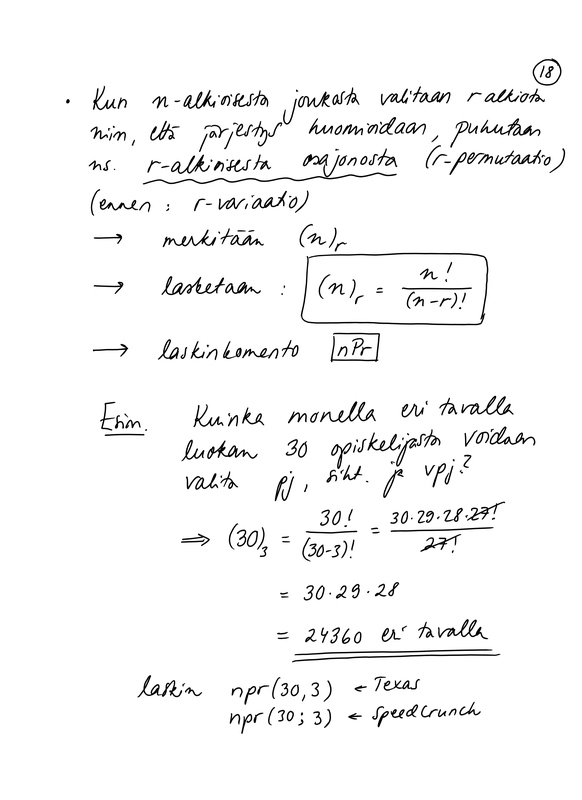 18
• Kun n-alkioisesta joukosta valitaan r alkiota
niin, että järjestys huomioidaan, puhutaan
ns. r-alkioisesta osajonosta (r-permutaatio)
(ennen : r-variaatio)
→ merkitään (n)r
→ lasketaan : (n)r = n! / (n-r)!
→ laskinkomento nPr
Esim. Kuinka monella eri tavalla
luokan 30 opiskelijasta voidaan
valita pj, siht. ja vpj?
⇒ (30)3 = 30! / (30-3)! = 30·29·28·27! / 27!
= 30·29·28
= 24360 eri tavalla
laskin npr(30,3) ← Texas
npr(30; 3) ← SpeedCrunch